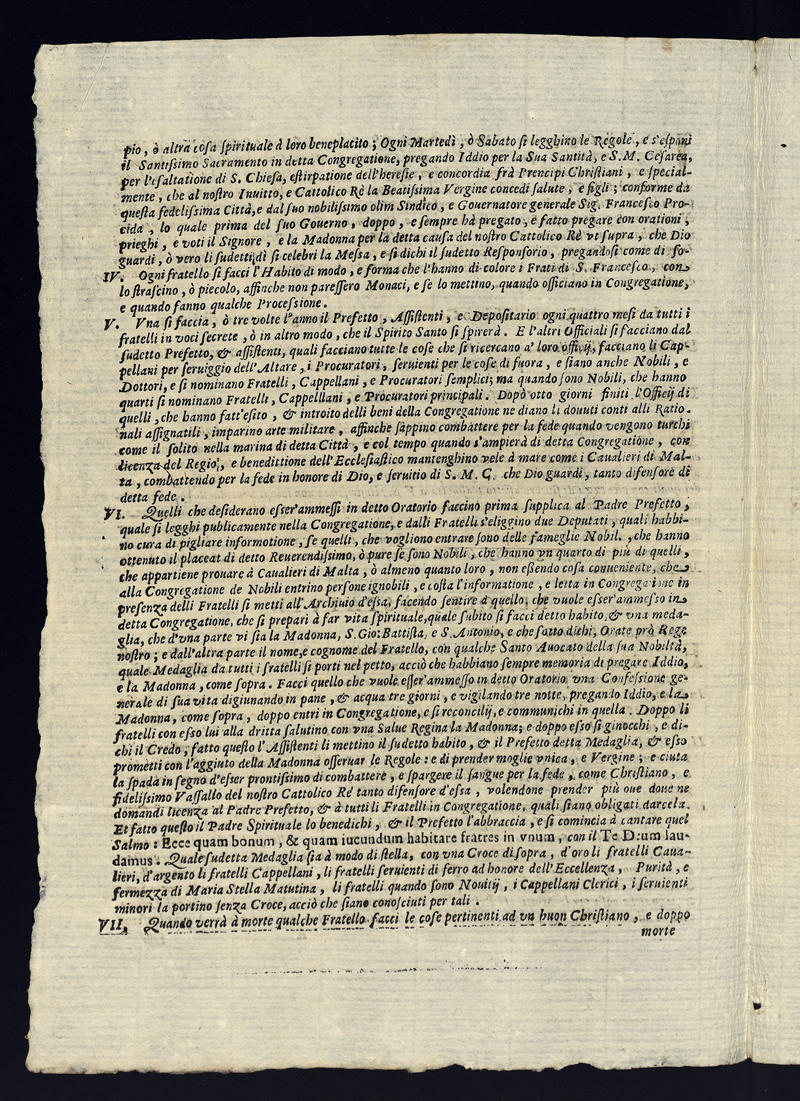 pio, ò altra cosa spirituale à loro beneplacito; Ogni Martedì, ò Sabato si legghino le Regole, e s'esponi
il Santissimo Sacramento in detta Congregatione, pregando Iddio per la Sua Santità, e S. M. Cesarea,
per l'esaltatione di S. Chiesa, estirpatione dell'heresie, e concordia frà Prencipi Christiani, e special-
mente, che al nostro Inuitto, e Cattolico Rè la Beatissima Vergine concedi salute, e figli; conforme da
questa fedelissima Città, e dal suo nobilissimo olim Sindico, e Gouernatore generale Sig. Francesco Pro-
cida, lo quale prima del suo Gouerno, doppo, e sempre hà pregato, e fatto pregare con orationi,
prieghi, e voti il Signore, e la Madonna per la detta causa del nostro Cattolico Rè vt supra, che Dio
guardi, ò vero li sudetti dì si celebri la Messa, e si dichi il sudetto Responsorio, pregandosi come di so-
IV. Ogni fratello si facci l'Habito di modo, e forma che l'hanno di colore i Frati di S. Francesco, con
lo strascino, ò piecolo, affinche non paressero Monaci, e se lo mettino, quando officiano in Congregatione,
e quando fanno qualche Processione.
V. Vna si faccia, ò tre volte l'anno il Prefetto, Assistenti, e Depositario ogni quattro mesi da tutti i
fratelli in voci secrete, ò in altro modo, che il Spirito Santo si spirerà. E l'altri Officiali si facciano dal
sudetto Prefetto, & assistenti, quali facciano tutte le cose che si ricercano a' loro officij, facciano li Cap-
pellani per seruiggio dell'Altare, i Procuratori, seruienti per le cose di fuora, e siano anche Nobili, e
Dottori, e si nominano Fratelli, Cappellani, e Procuratori semplici; ma quando sono Nobili, che hanno
quarti si nominano Fratelli, Cappelllani, e Procuratori principali. Dopò otto giorni finiti l'Officij di
quelli, che hanno fatt'esito, & introito delli beni della Congregatione ne diano li douuti conti alli Ratio-
nali assignatili, imparino arte militare, affinche sappino combattere per la fede quando vengono turchi
come il solito nella marina di detta Città, e col tempo quando s'ampierà di detta Congregatione, con
licenza del Regio, e benedittione dell'Ecclesiastico mantenghino vele à mare come i Caualieri di Mal-
ta, combattendo per la fede in honore di Dio, e seruitio di S. M. C. che Dio guardi, tanto difensore di
detta fede.
VI. Quelli che desiderano esser'ammessi in detto Oratorio faccino prima supplica al Padre Prefetto,
quale si legghi publicamente nella Congregatione, e dalli Fratelli s'eliggino due Deputati, quali habbi-
no cura di pigliare informotione, se quelli, che vogliono entrare sono delle fameglie Nobil., che hanno
ottenuto il placeat di detto Reuerendissimo, ò pure se sono Nobili, che hanno vn quarto di più di quelli,
che appartiene prouare à Caualieri di Malta, ò almeno quanto loro, non essendo cosa conueniente, che
alla Congregatione de Nobili entrino persone ignobili, e costa l'informatione, e letta in Congregatione in
presenza delli Fratelli si metti all'Archiuio d'essa, facendo sentire à quello, che vuole esser'ammesso in
detta Congregatione, che si prepari à far vita spirituale, quale subito si facci detto habito, & vna meda-
glia, che d'vna parte vi sia la Madonna, S. Gio: Battista, e S. Antonio, e che sotto dichi, Orate prò Rege
nostro; e dall'altra parte il nome, e cognome del Fratello, con qualche Santo Auocato della sua Nobiltà,
quale Medaglia da tutti i fratelli si porti nel petto, acciò che habbiano sempre memoria di pregare Iddio,
e la Madonna, come sopra. Facci quello che vuole esser'ammesso in detto Oratorio vna Confessione ge-
nerale di sua vita digiunando in pane, & acqua tre giorni, e vigilando tre notte, pregando Iddio, e la
Madonna, come sopra, doppo entri in Congregatione, e si reconcilij, e communichi in quella. Doppo li
fratelli con esso lui alla dritta salutino con vna Salue Regina la Madonna; e doppo esso si ginocchi, e di-
chi il Credo, fatto questo l'Assistenti li mettino il sudetto habito, & il Prefetto detta Medaglia, & esso
prometti con l'aggiuto della Madonna osseruar le Regole: e di prender moglie vnica, e Vergine; e cinta
la spada in segno d'esser prontissimo di combattere, e spargere il sangue per la fede, come Christiano, e
fidelissimo Vassallo del nostro Cattolico Rè tanto difensore d'essa, volendone prender più oue doue ne
domandi licenza al Padre Prefetto, & à tutti li Fratelli in Congregatione, quali siano obligati darcela.
Et fatto questo il Padre Spirituale lo benedichi, & il Prefetto l'abbraccia, e si comincia à cantare quel
Salmo: Ecce quam bonum, & quam iucundum habitare fratres in vnum, con il Te Deum lau-
damus. Quale sudetta Medaglia sia à modo di stella, con vna Croce di sopra, d'oro li fratelli Caua-
lieri, d'argento li fratelli Cappellani, li fratelli seruienti di ferro ad honore dell'Eccellenza, Purità, e
fermezza di Maria Stella Matutina, li fratelli quando sono Nouitij, i Cappellani Clerici, i seruienti
minori la portino senza Croce, acciò che siano conosciuti per tali.
VII. Quando verrà à morte qualche Fratello facci le cose pertinenti ad vn buon Christiano, e doppo
morte